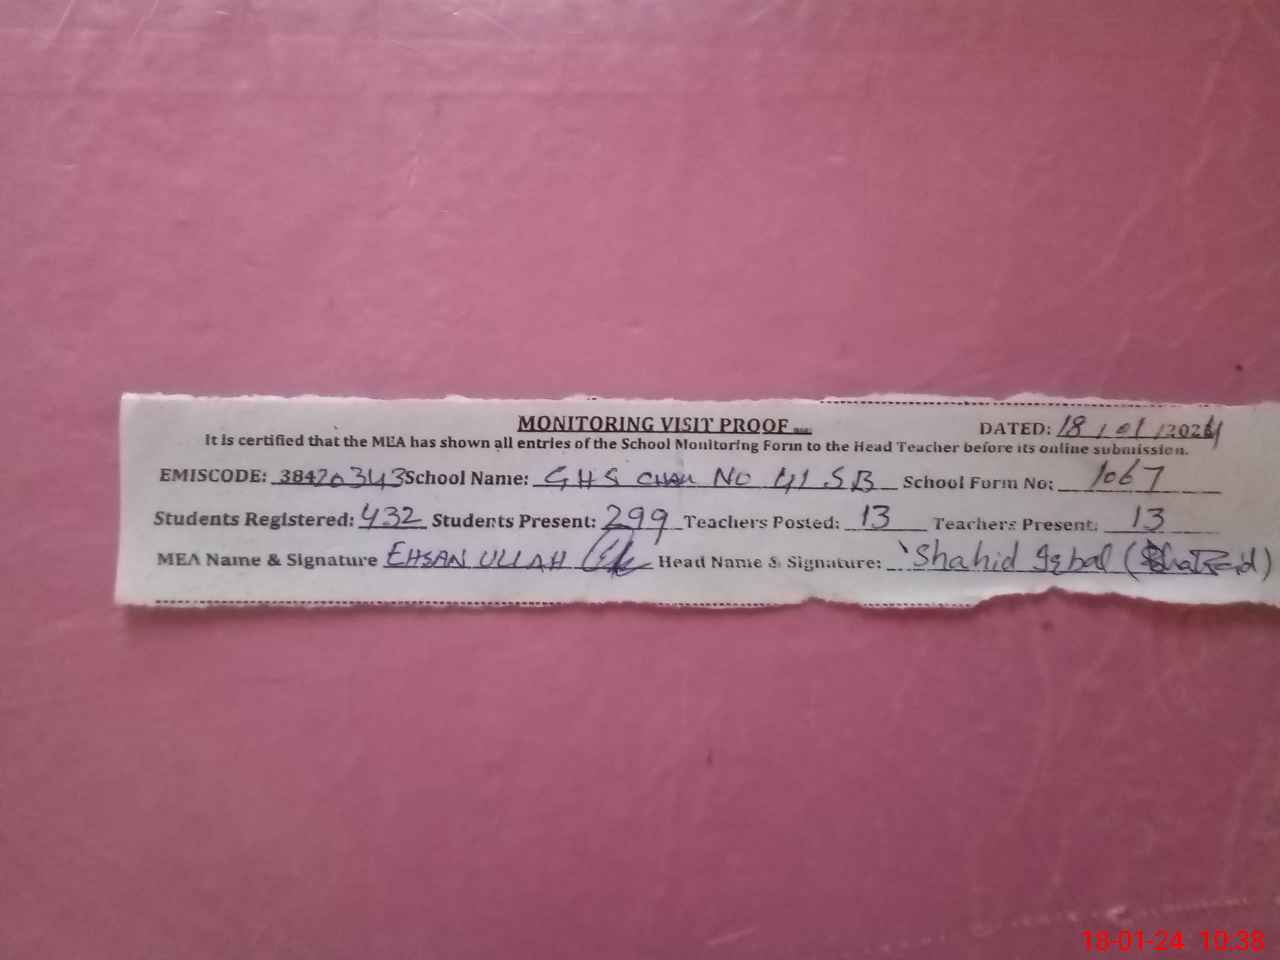 MONITORING VISIT PROOF
DATED: 18/01/2024
It is certified that the MEA has shown all entries of the School Monitoring Form to the Head Teacher before its online submission.
EMISCODE: 38420343 School Name: GHS CHAK NO 41 SB School Form No: 1067
Students Registered: 432 Students Present: 299 Teachers Posted: 13 Teachers Present: 13
MEA Name & Signature EHSAN ULLAH Head Name & Signature: Shahid Iqbal
18-01-24 10:38